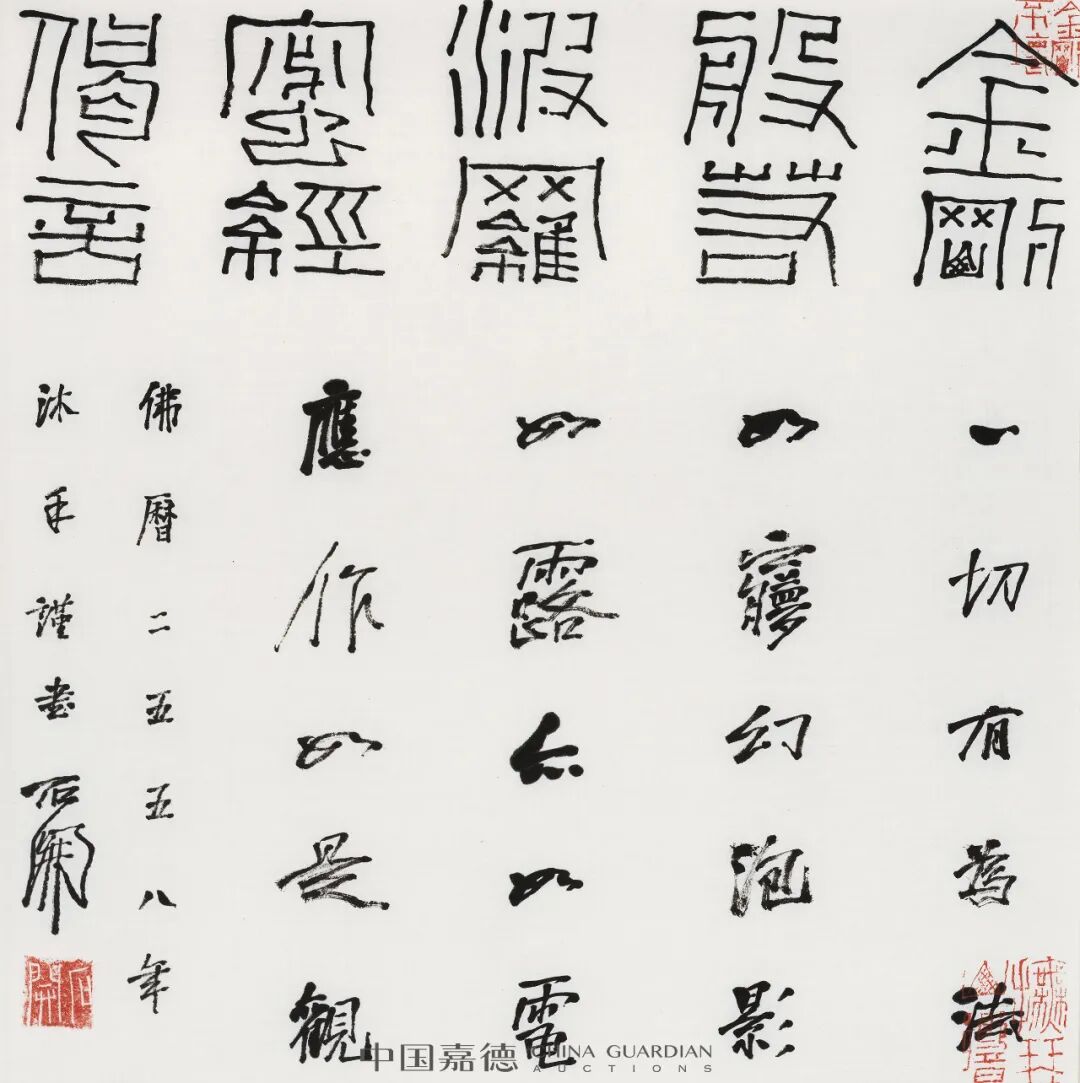 金剛
般若
波羅
蜜經
偈言
一切有為法
如夢幻泡影
如露亦如電
應作如是觀
佛曆二五五八年
沐手謹書 石開
石開
中国嘉德 CHINA GUARDIAN
AUCTIONS